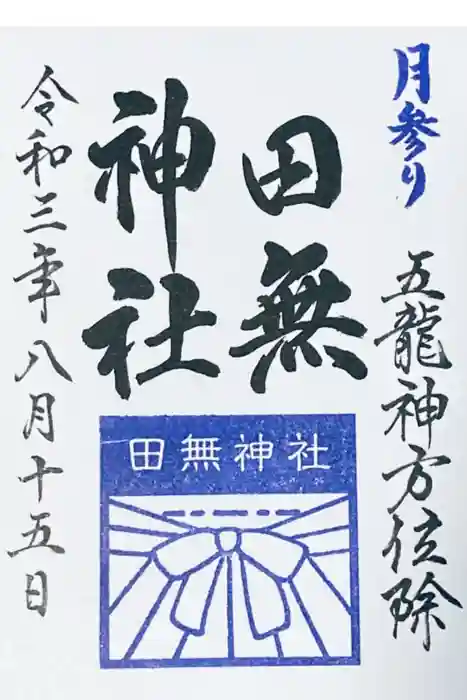 月参り
五龍神方位除
田無
神社
令和三年八月十五日
田無神社